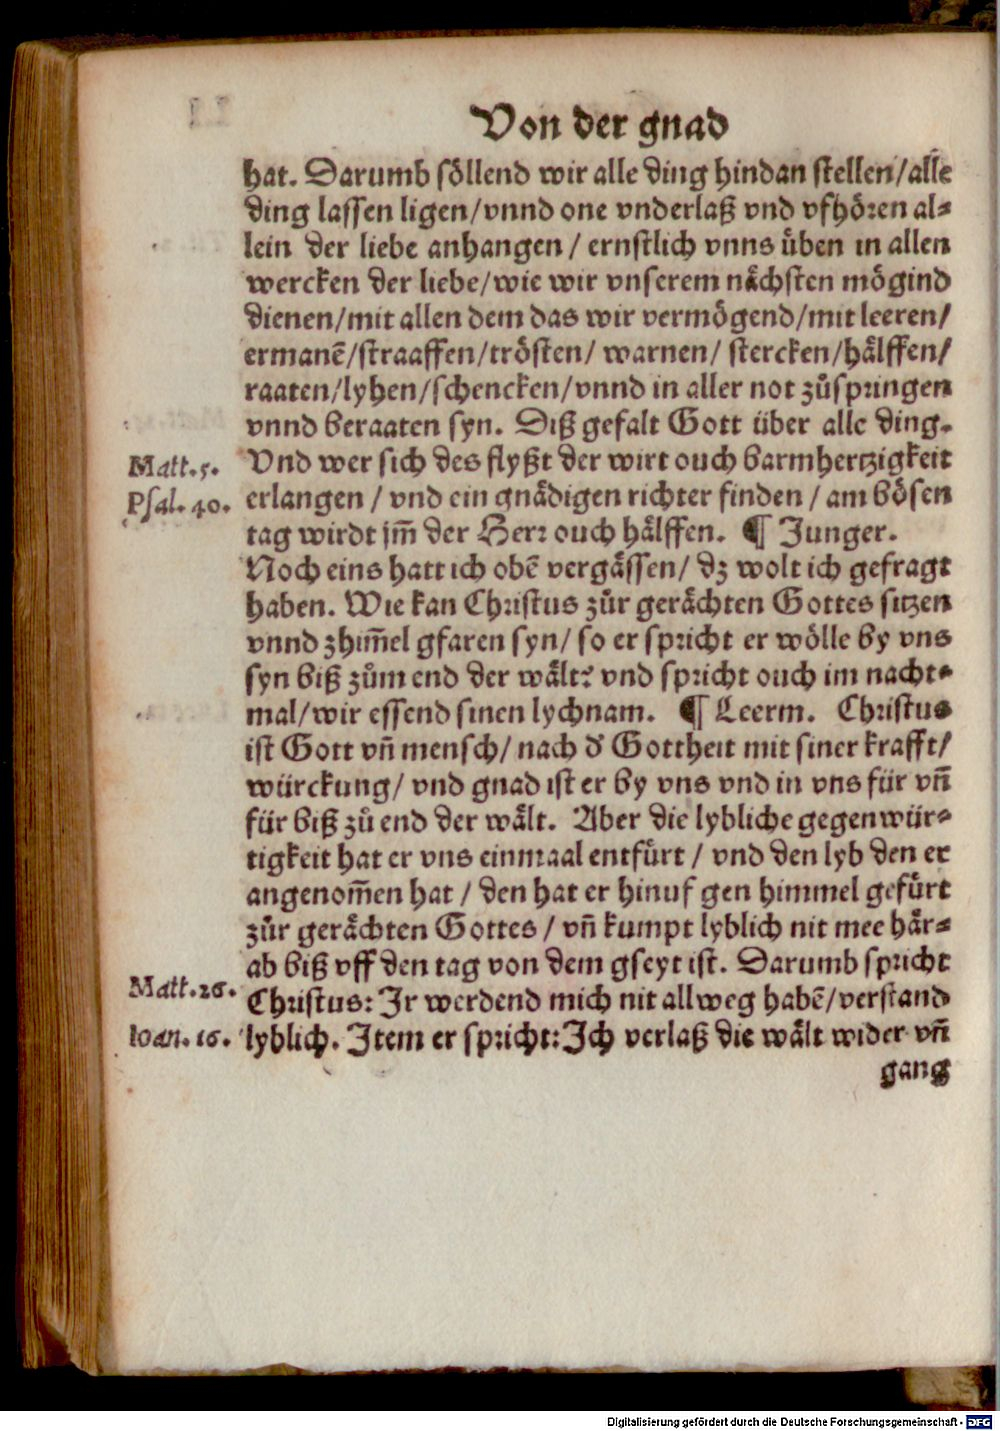 Von der gnad
hat. Darumb söllend wir alle ding hindan stellen/alle
ding lassen ligen/vnnd one vnderlaß vnd vfhören al⸗
lein der liebe anhangen / ernstlich vnns üben in allen
wercken der liebe/wie wir vnserem nächsten mögind
dienen/mit allen dem das wir vermögend/mit leeren/
ermanē/straaffen/trösten/ warnen/ stercken/hälffen/
raaten/lyhen/schencken/vnnd in aller not zůspringen
vnnd beraaten syn. Diß gefalt Gott über alle ding.
Matt.5. Vnd wer sich des flyßt der wirt ouch barmhertzigkeit
Psal. 40. erlangen / vnd ein gnädigen richter finden / am bösen
tag wirdt jm̄ der Herr ouch hälffen. ¶ Junger.
Noch eins hatt ich obē vergässen/ dz wolt ich gefragt
haben. Wie kan Christus zůr gerächten Gottes sitzen
vnnd zhim̄el gfaren syn/ so er spricht er wölle by vns
syn biß zům end der wält? vnd spricht ouch im nacht⸗
mal/wir essend sinen lychnam. ¶ Leerm. Christus
ist Gott vn̄ mensch/ nach d' Gottheit mit siner krafft/
würckung/ vnd gnad ist er by vns vnd in vns für vn̄
für biß zů end der wält. Aber die lybliche gegenwür⸗
tigkeit hat er vns einmaal entfürt / vnd den lyb den er
angenom̄en hat / den hat er hinuf gen himmel gefürt
zůr gerächten Gottes / vn̄ kumpt lyblich nit mee här⸗
ab biß vff den tag von dem gseyt ist. Darumb spricht
Matt.26. Christus: Ir werdend mich nit allweg habē/verstand
Ioan. 16. lyblich. Item er spricht: Ich verlaß die wält wider vn̄
gang
Digitalisierung gefördert durch die Deutsche Forschungsgemeinschaft - DFG